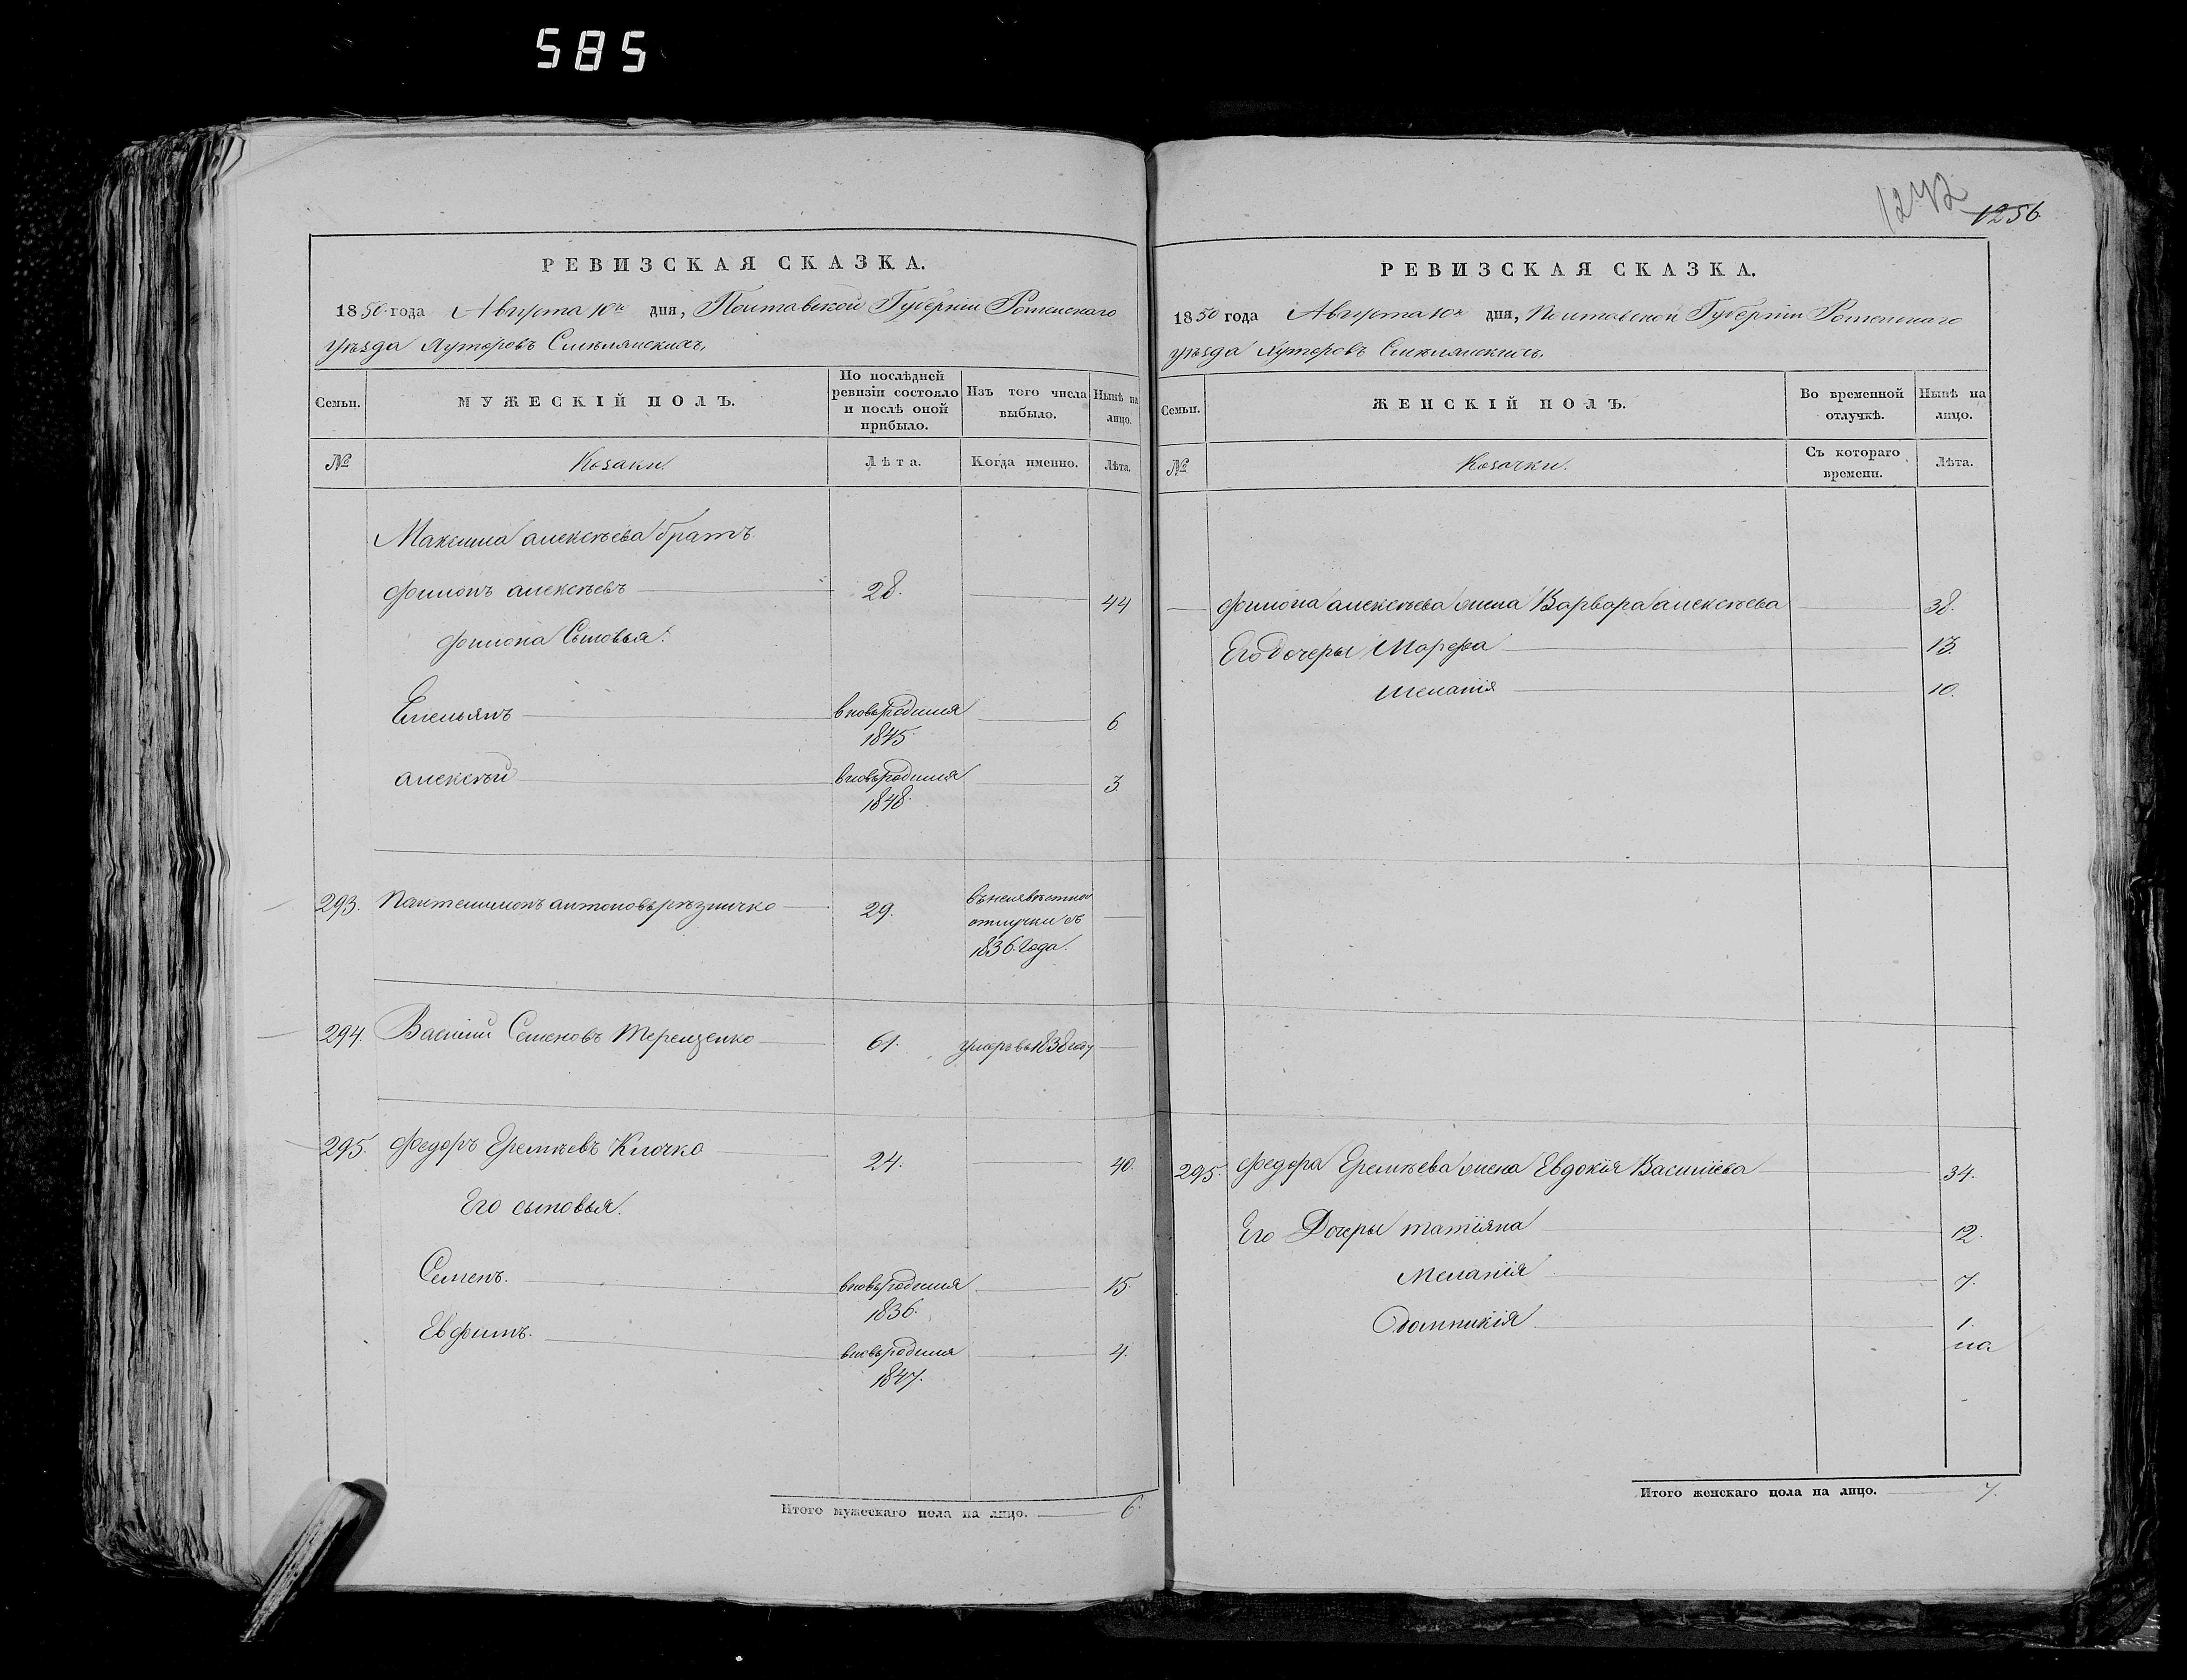 585
1242
1256
РЕВИЗСКАЯ СКАЗКА.
1850 года Августа 10го дня, Полтавской Губерніи Роменскаго
уѣзда Хуторовъ Смѣлянскихъ,
Семьи.
МУЖЕСКІЙ ПОЛЪ.
По послѣдней ревизіи состояло и послѣ оной прибыло.
Изъ того числа выбыло.
Нынѣ на лицо.
№
Козаки.
Лѣта.
Когда именно.
Лѣта.
Максима алексѣева братъ
Филонъ алексѣевъ 28. 44
Филона Сыновья:
Емельянъ вновьродился 6
1845.
алексѣй вновьродился 3.
1848.
293. Пантелимонъ антоновъ рѣзничко 29. въ неизвѣстной
отлучки съ
1836 Года.
294. Василій Семеновъ Терещенко 61. умеръ въ 1838 году
295. Федоръ Еремѣевъ Клочко 24. 40.
Его сыновья.
Семенъ. вновьродился 15.
1836.
Евфимъ. вновьродился 4.
1847.
Итого мужескаго пола на лицо. 6.
РЕВИЗСКАЯ СКАЗКА.
1850 года Августа 10го дня, Полтавской Губерніи Роменскаго
уѣзда Хуторовъ Смѣлянскихъ.
Семьи.
ЖЕНСКІЙ ПОЛЪ.
Во временной отлучкѣ.
Нынѣ на лицо.
№
Козачки.
Съ котораго времени.
Лѣта.
Филона алексѣева жена Варвара алексѣева 38.
Его Дочеры Марфа 13.
Меланія 10.
295. Федора Еремѣева жена Евдокія Василіева 34.
Его Дочеры татіяна 12.
Меланія 7.
Домникія 1.
на
Итого женскаго пола на лицо. 7.